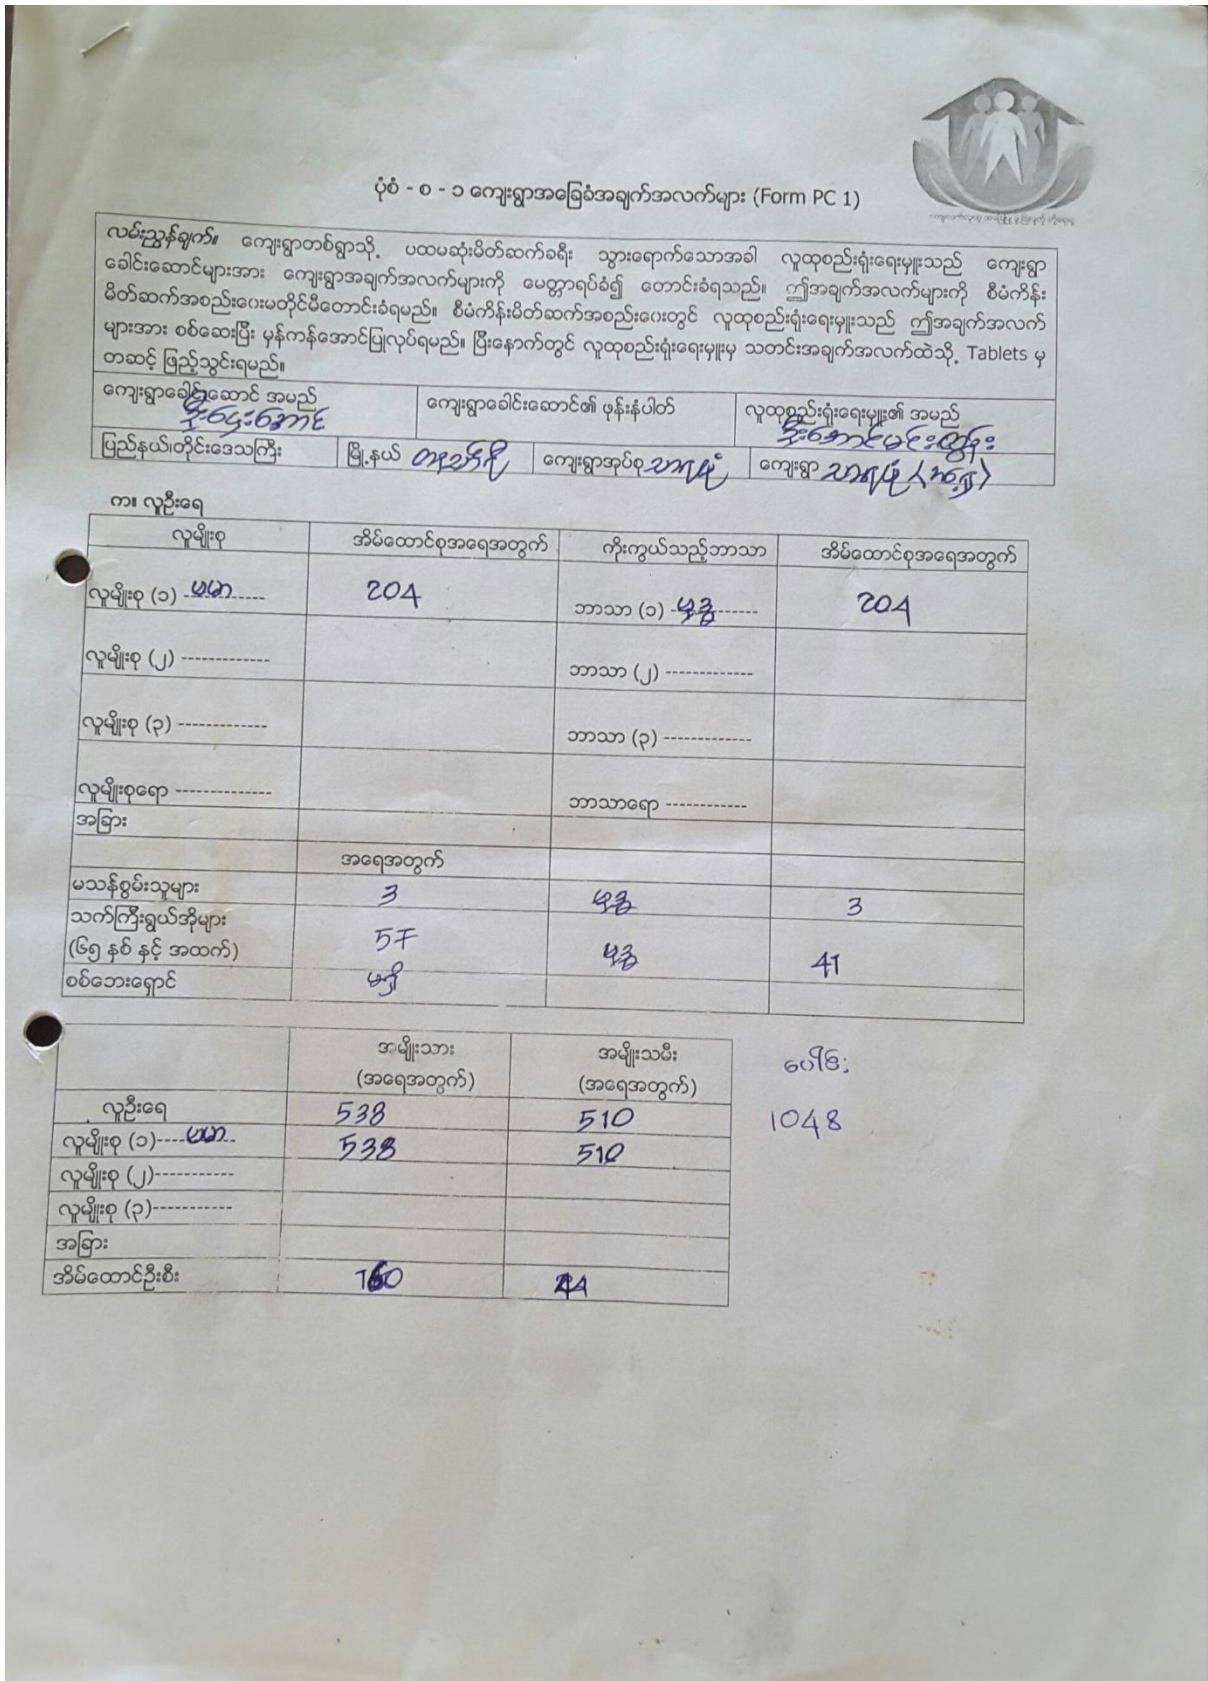 ပုံစံ - စ - ၁ ကျေးရွာအခြေခံအချက်အလက်များ (Form PC 1)
လမ်းညွှန်ချက်။ ကျေးရွာတစ်ရွာသို့ ပထမဆုံးမိတ်ဆက်ခရီး သွားရောက်သောအခါ လူထုစည်းရုံးရေးမှူးသည် ကျေးရွာ
ခေါင်းဆောင်များအား ကျေးရွာအချက်အလက်များကို မေတ္တာရပ်ခံ၍ တောင်းခံရသည်။ ဤအချက်အလက်များကို စီမံကိန်း
မိတ်ဆက်အစည်းဝေးမတိုင်မီတောင်းခံရမည်။ စီမံကိန်းမိတ်ဆက်အစည်းဝေးတွင် လူထုစည်းရုံးရေးမှူးသည် ဤအချက်အလက်
များအား စစ်ဆေးပြီး မှန်ကန်အောင်ပြုလုပ်ရမည်။ ပြီးနောက်တွင် လူထုစည်းရုံးရေးမှူးမှ သတင်းအချက်အလက်ထဲသို့ Tablets မှ
တဆင့် ဖြည့်သွင်းရမည်။
ကျေးရွာခေါင်းဆောင် အမည် ကျေးရွာခေါင်းဆောင်၏ ဖုန်းနံပါတ် လူထုစည်းရုံးရေးမှူး၏ အမည်
ဦးဌေးအောင် ဦးအောင်မင်းထွန်း
ပြည်နယ်၊တိုင်းဒေသကြီး မြို့နယ် ကျေးရွာအုပ်စု သာရပုံ ကျေးရွာ သာရပုံ
က။ လူဦးရေ
လူမျိုးစု အိမ်ထောင်စုအရေအတွက် ကိုးကွယ်သည့်ဘာသာ အိမ်ထောင်စုအရေအတွက်
လူမျိုးစု (၁) -ဗမာ------ 204 ဘာသာ (၁) -ဗုဒ္ဓ------ 204
လူမျိုးစု (၂) ------------- ဘာသာ (၂) -------------
လူမျိုးစု (၃) ------------- ဘာသာ (၃) -------------
လူမျိုးစုရော -------------- ဘာသာရော ------------
အခြား
အရေအတွက်
မသန်စွမ်းသူများ 3 ဗုဒ္ဓ 3
သက်ကြီးရွယ်အိုများ
(၆၅ နှစ် နှင့် အထက်) 57 ဗုဒ္ဓ 41
စစ်ဘေးရှောင် မရှိ
အမျိုးသား အမျိုးသမီး ပေါင်း
(အရေအတွက်) (အရေအတွက်)
လူဦးရေ 538 510 1048
လူမျိုးစု (၁)----ဗမာ-- 538 510
လူမျိုးစု (၂)-----------
လူမျိုးစု (၃)-----------
အခြား
အိမ်ထောင်ဦးစီး 160 44